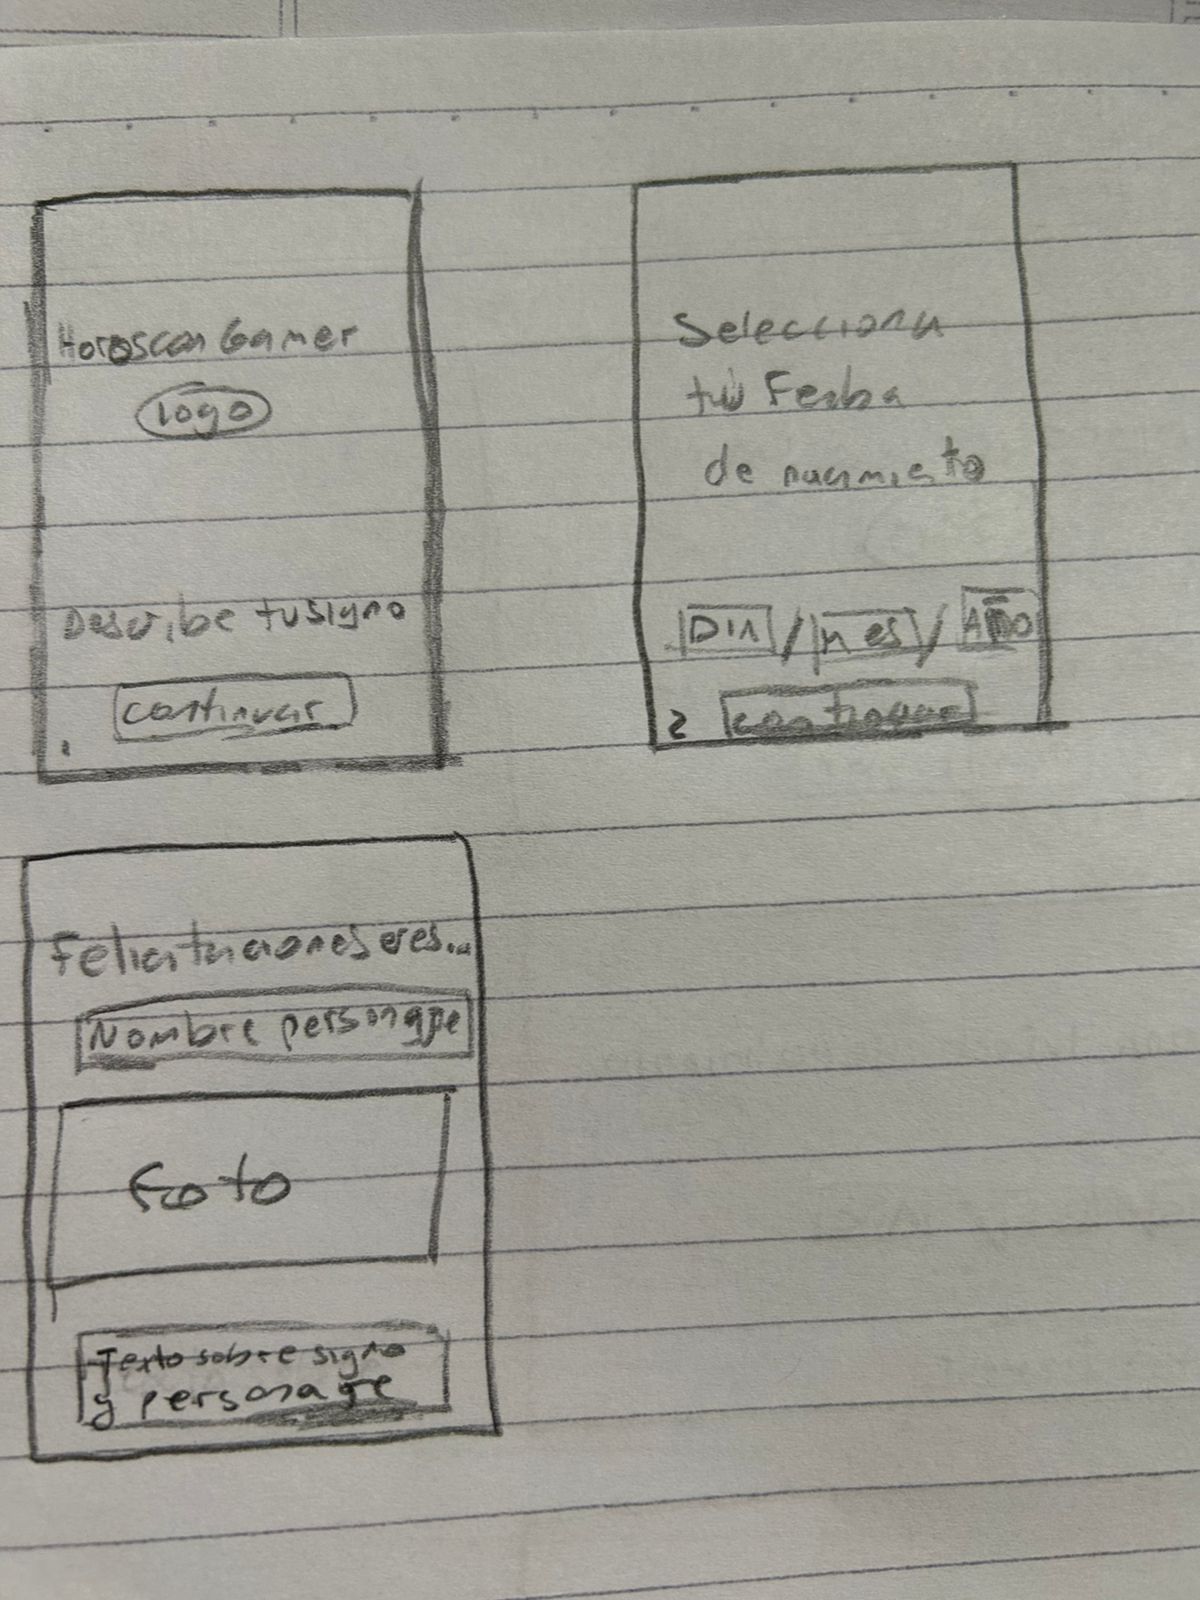 Horoscon Gamer
logo
Describe tu signo
continuar
1
Selecciona
tu Fecha
de nacimiento
DIA / Mes / AÑO
2 continuar
Felicitaciones eres...
Nombre personaje
Foto
Texto sobre signo
y personaje